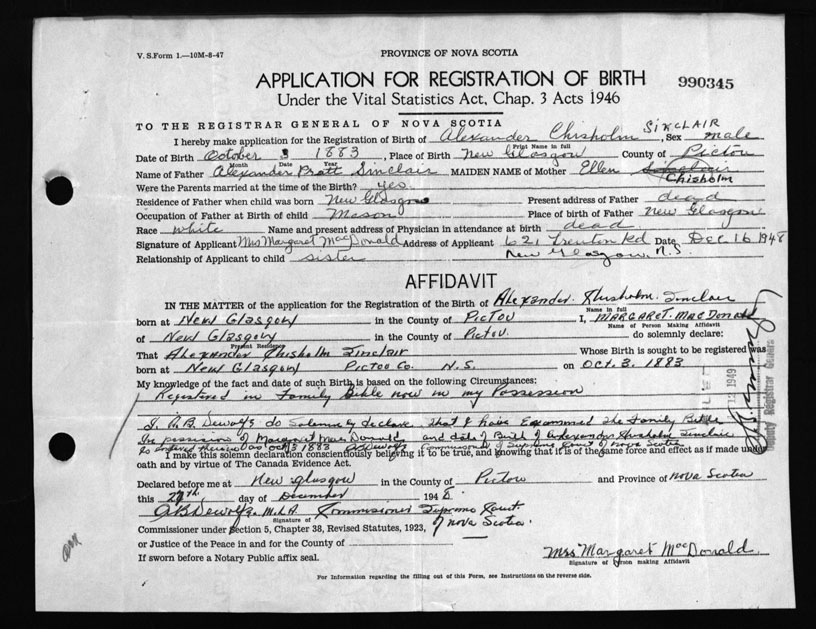 V. S. Form 1.—10M-8-47
PROVINCE OF NOVA SCOTIA
APPLICATION FOR REGISTRATION OF BIRTH
990345
Under the Vital Statistics Act, Chap. 3 Acts 1946
TO THE REGISTRAR GENERAL OF NOVA SCOTIA
I hereby make application for the Registration of Birth of Alexander Chisholm SINCLAIR, Sex male
Print Name in full
Date of Birth October 3 1883, Place of Birth New Glasgow County of Pictou
Month Date Year
Name of Father Alexander Pratt Sinclair MAIDEN NAME of Mother Ellen Chisholm
Were the Parents married at the time of the Birth? yes
Residence of Father when child was born New Glasgow Present address of Father dead
Occupation of Father at Birth of child Mason Place of birth of Father New Glasgow
Race white Name and present address of Physician in attendance at birth dead
Signature of Applicant Mrs Margaret MacDonald Address of Applicant 621 Trenton Rd Date Dec 16 1948
Relationship of Applicant to child sister New Glasgow, N.S.
AFFIDAVIT
IN THE MATTER of the application for the Registration of the Birth of Alexander Chisholm Sinclair
Name in full
born at New Glasgow in the County of Pictou I, MARGARET MACDONALD
Name of Person Making Affidavit
of New Glasgow County of Pictou. do solemnly declare:
Present Residence
That Alexander Chisholm Sinclair Whose Birth is sought to be registered was
born at New Glasgow Pictou Co. N.S. on Oct. 3. 1883
My knowledge of the fact and date of such Birth is based on the following Circumstances:
Registered in Family Bible now in my Possession
I, A.B. Dewolfe do Solemnly declare that I have Examined the Family Bible
In possession of Margaret MacDonald and date of Birth of Alexander Chisholm Sinclair
So entered therein was Oct 3 1883 A.B. Dewolfe Commissioner of Supreme Court of Nova Scotia
I make this solemn declaration conscientiously believing it to be true, and knowing that it is of the same force and effect as if made under
oath and by virtue of The Canada Evidence Act.
Declared before me at New Glasgow in the County of Pictou and Province of Nova Scotia
this 29th day of December 1948.
A B Dewolfe M.L.A. Commissioner Supreme Court
Signature of
Commissioner under Section 5, Chapter 38, Revised Statutes, 1923, of Nova Scotia.
or Justice of the Peace in and for the County of
Mrs Margaret MacDonald
If sworn before a Notary Public affix seal.
Signature of Person making Affidavit
For Information regarding the filling out of this Form, see Instructions on the reverse side.
12 1949
Deputy Registrar General